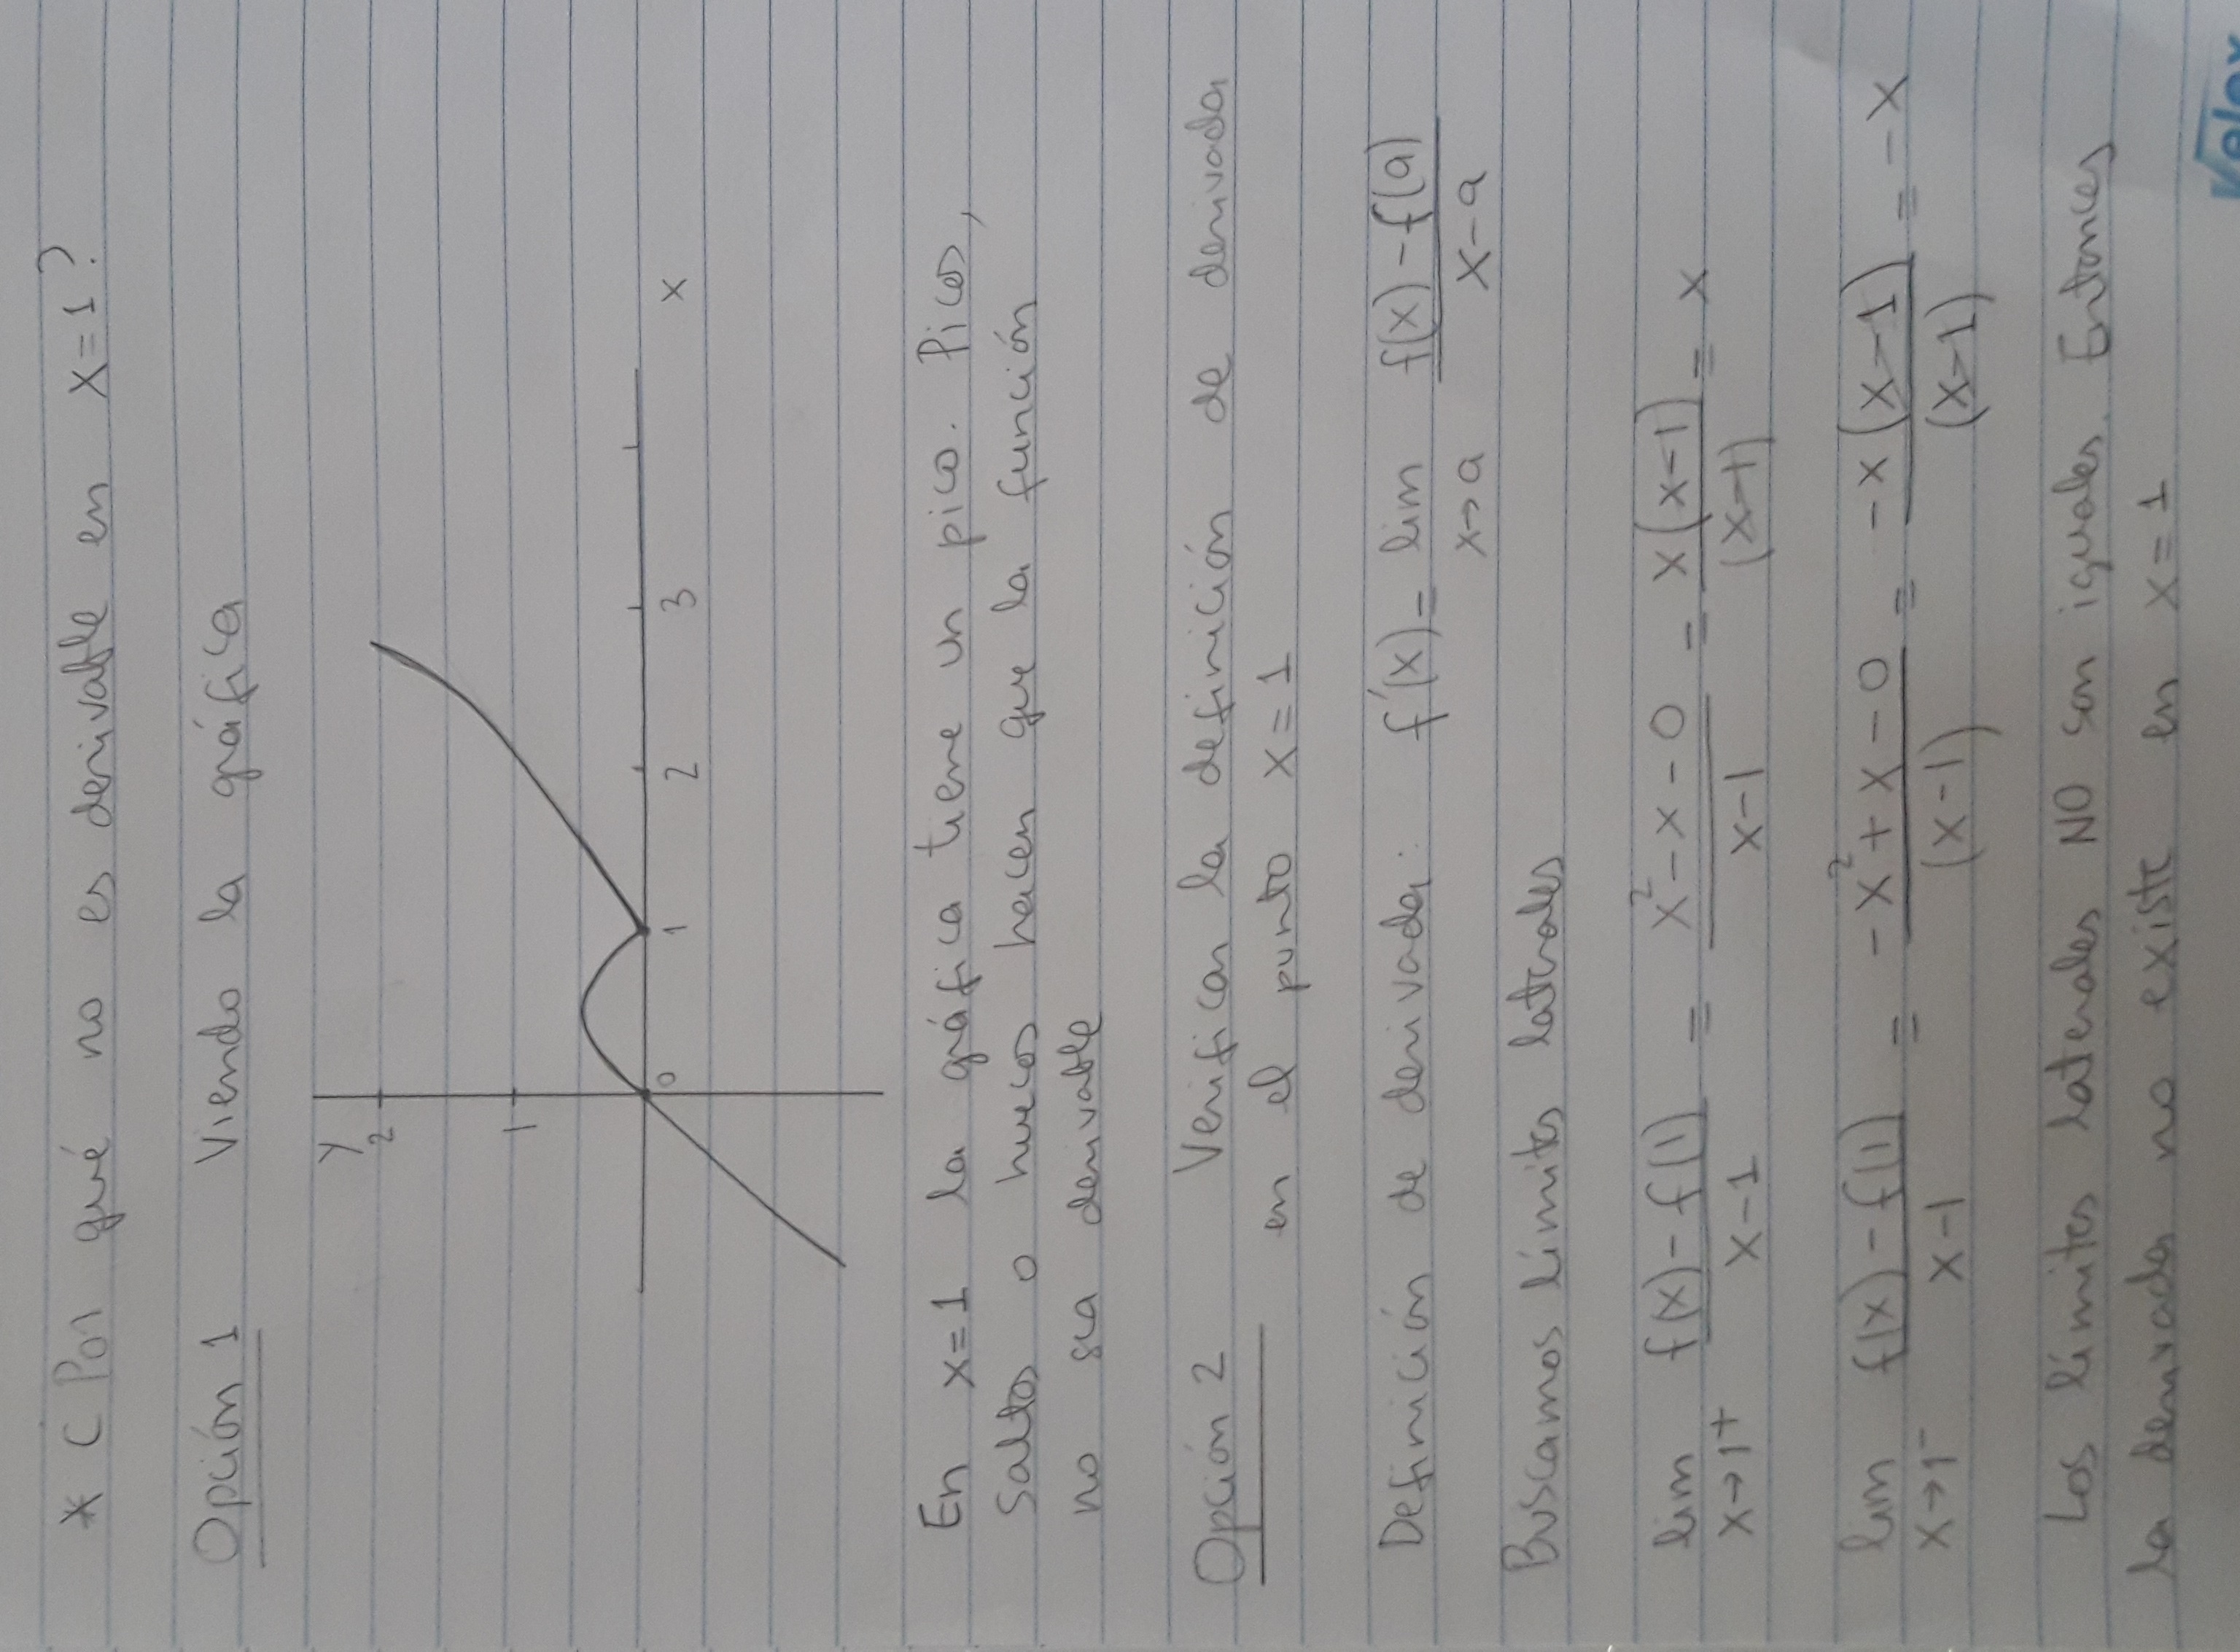 * ¿ Por qué no es derivable en x=1?
Opción 1 Viendo la gráfica
y
2
1
0 1 2 3 x
En x=1 la gráfica tiene un pico. Picos,
saltos o huecos hacen que la función
no sea derivable
Opción 2 Verificar la definición de derivada
en el punto x=1
Definición de derivada: f'(x) = lim x→a (f(x)-f(a))/(x-a)
Buscamos límites laterales
lim x→1⁺ (f(x)-f(1))/(x-1) = (x²-x-0)/(x-1) = x(x-1)/(x-1) = x
lim x→1⁻ (f(x)-f(1))/(x-1) = (-x²+x-0)/(x-1) = -x(x-1)/(x-1) = -x
Los límites laterales NO son iguales. Entonces
la derivada no existe en x=1